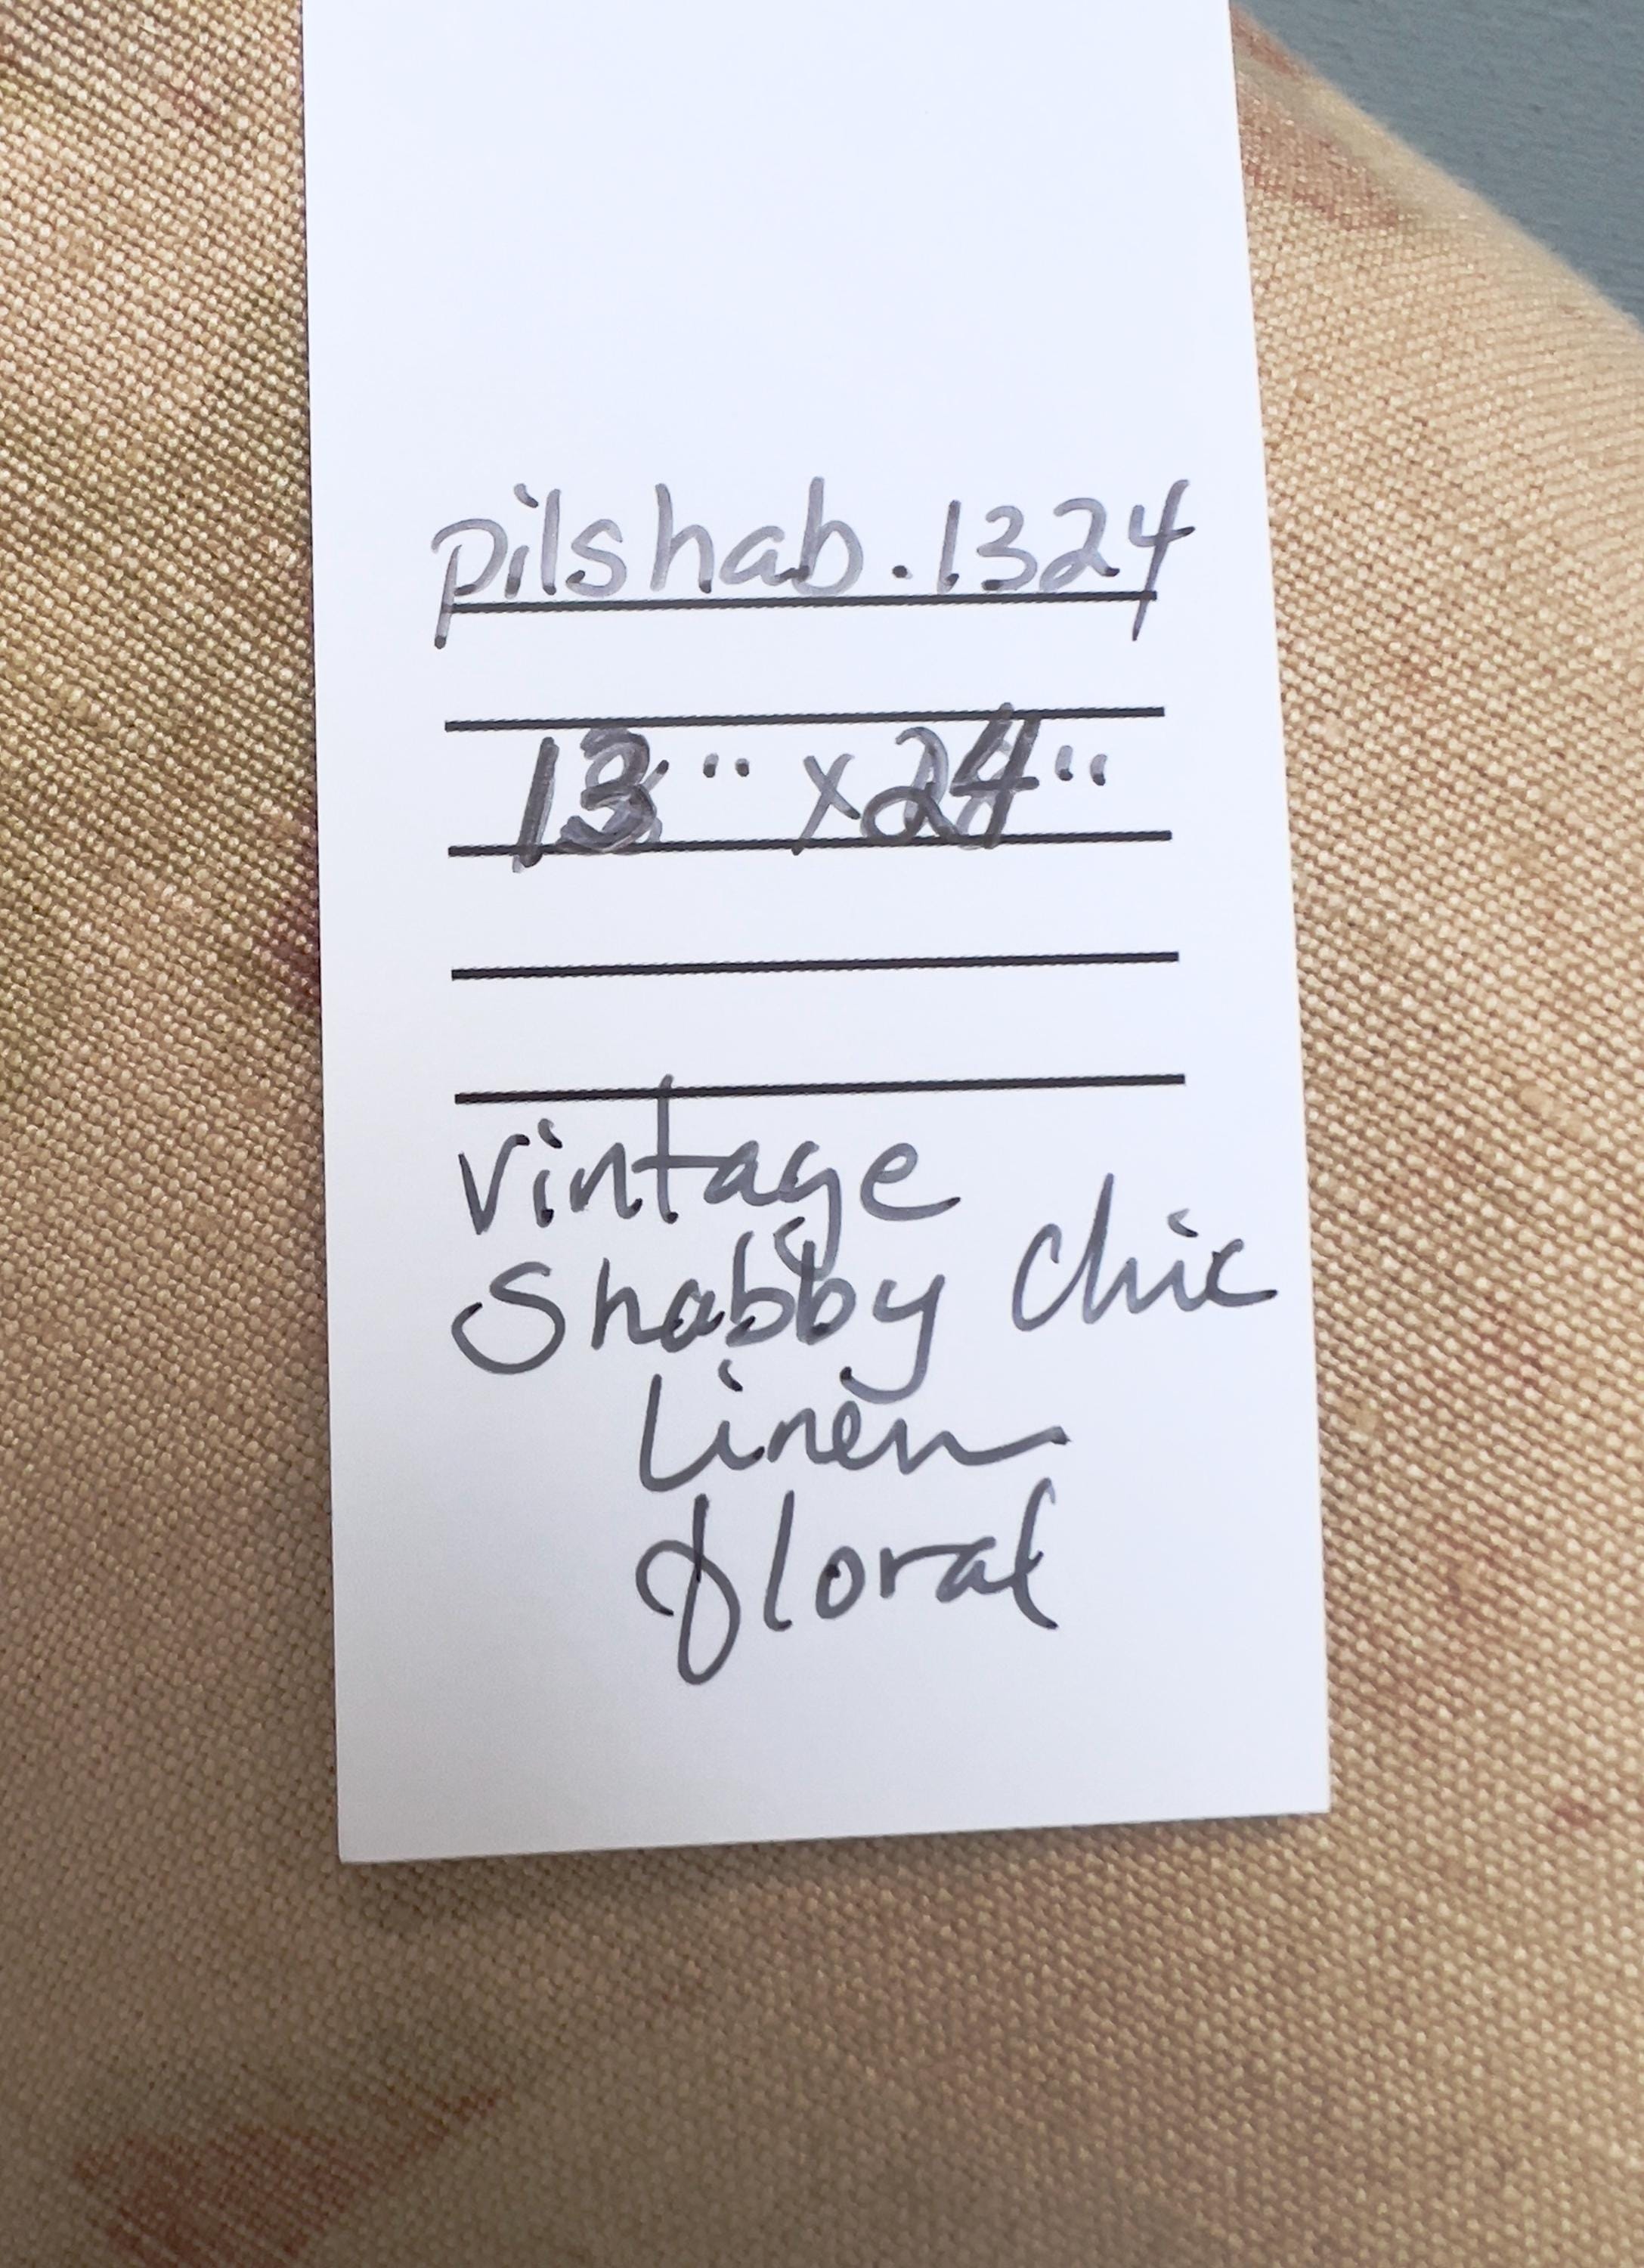 pilshab.1324
13" x 24"
Vintage
Shabby Chic
Linen
floral